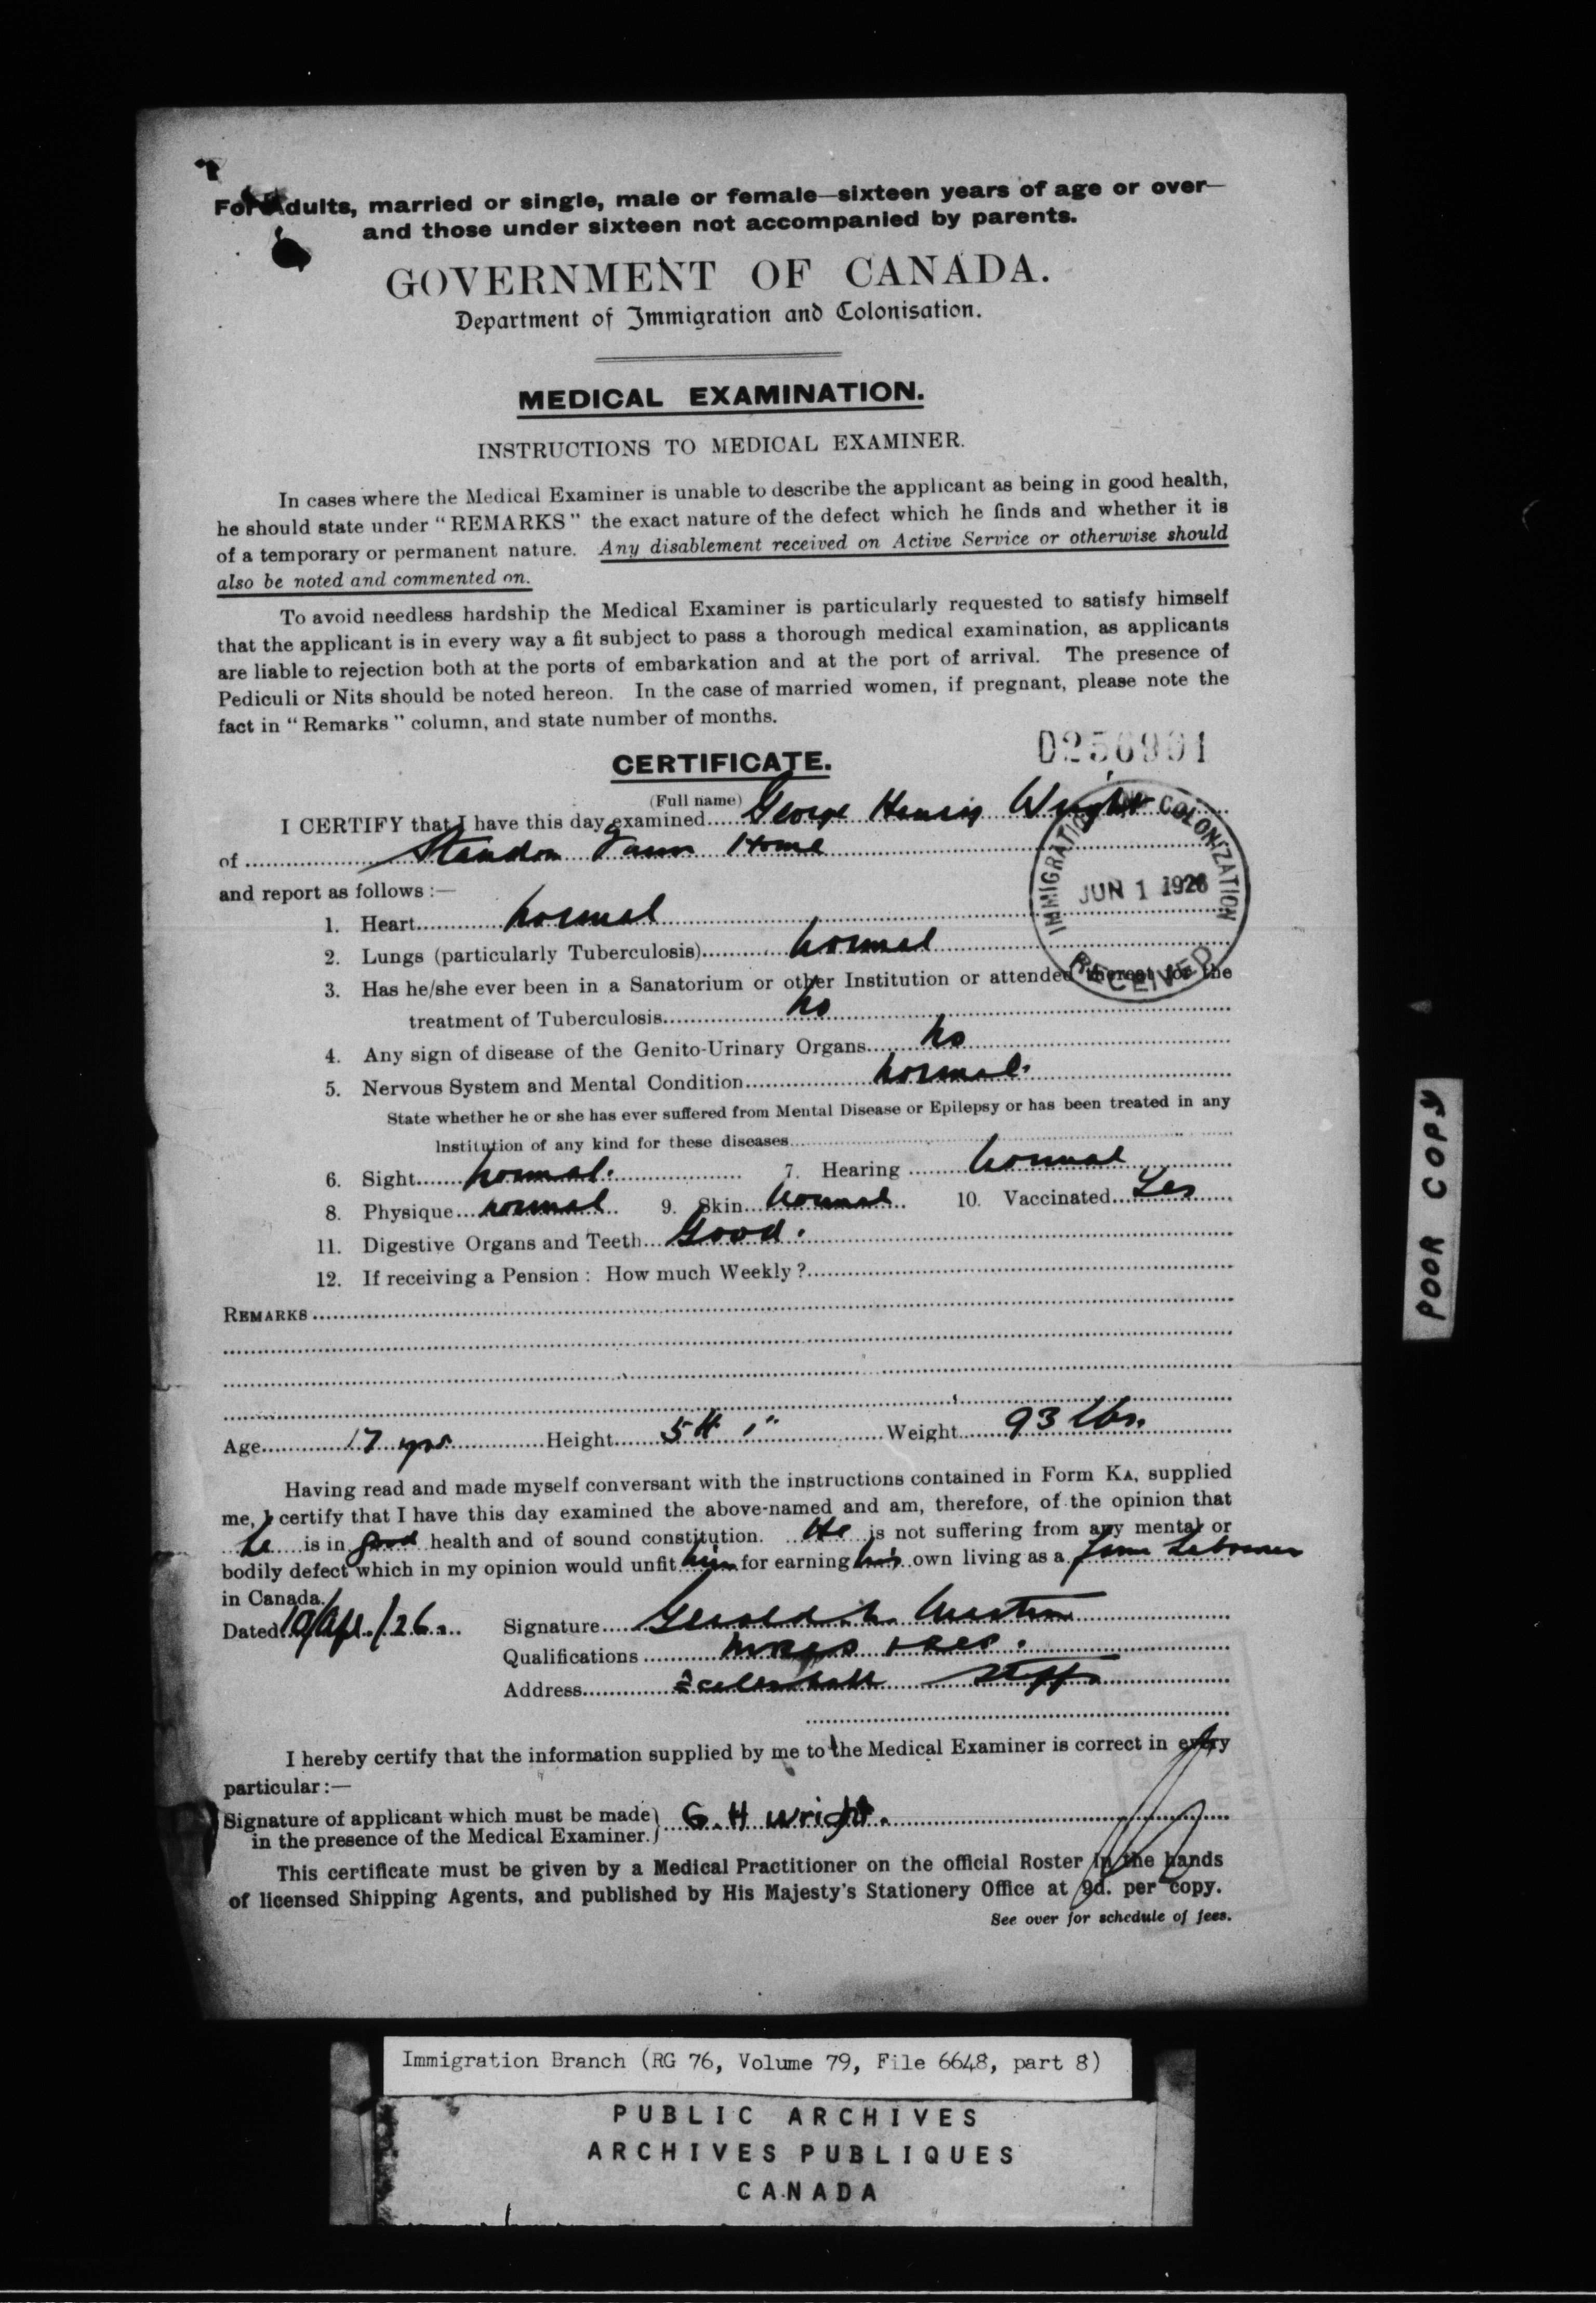 For Adults, married or single, male or female—sixteen years of age or over—
and those under sixteen not accompanied by parents.
GOVERNMENT OF CANADA.
Department of Immigration and Colonisation.
MEDICAL EXAMINATION.
INSTRUCTIONS TO MEDICAL EXAMINER.
In cases where the Medical Examiner is unable to describe the applicant as being in good health,
he should state under "REMARKS" the exact nature of the defect which he finds and whether it is
of a temporary or permanent nature. Any disablement received on Active Service or otherwise should
also be noted and commented on.
To avoid needless hardship the Medical Examiner is particularly requested to satisfy himself
that the applicant is in every way a fit subject to pass a thorough medical examination, as applicants
are liable to rejection both at the ports of embarkation and at the port of arrival. The presence of
Pediculi or Nits should be noted hereon. In the case of married women, if pregnant, please note the
fact in "Remarks" column, and state number of months.
CERTIFICATE.
(Full name)
I CERTIFY that I have this day examined George Henry Wright
of Standon Farm Home
IMMIGRATION AND COLONIZATION
JUN 1 1926
RECEIVED
and report as follows:—
1. Heart normal
2. Lungs (particularly Tuberculosis) normal
3. Has he/she ever been in a Sanatorium or other Institution or attended thereat for the
treatment of Tuberculosis no
4. Any sign of disease of the Genito-Urinary Organs no
5. Nervous System and Mental Condition normal.
State whether he or she has ever suffered from Mental Disease or Epilepsy or has been treated in any
Institution of any kind for these diseases
6. Sight normal. 7. Hearing normal
8. Physique normal 9. Skin normal 10. Vaccinated Yes
11. Digestive Organs and Teeth Good.
12. If receiving a Pension: How much Weekly?
REMARKS
Age 17 yrs. Height 5 ft 1" Weight 93 lbs.
Having read and made myself conversant with the instructions contained in Form KA, supplied
me, I certify that I have this day examined the above-named and am, therefore, of the opinion that
he is in good health and of sound constitution. He is not suffering from any mental or
bodily defect which in my opinion would unfit him for earning his own living as a farm labourer
in Canada.
Dated 10/Apl./26. Signature Gerald
Qualifications MRCS
Address Eccleshall Staffs
I hereby certify that the information supplied by me to the Medical Examiner is correct in every
particular:—
Signature of applicant which must be made
in the presence of the Medical Examiner. G. H Wright.
This certificate must be given by a Medical Practitioner on the official Roster in the hands
of licensed Shipping Agents, and published by His Majesty's Stationery Office at 9d. per copy.
See over for schedule of fees.
POOR COPY
Immigration Branch (RG 76, Volume 79, File 6648, part 8)
PUBLIC ARCHIVES
ARCHIVES PUBLIQUES
CANADA